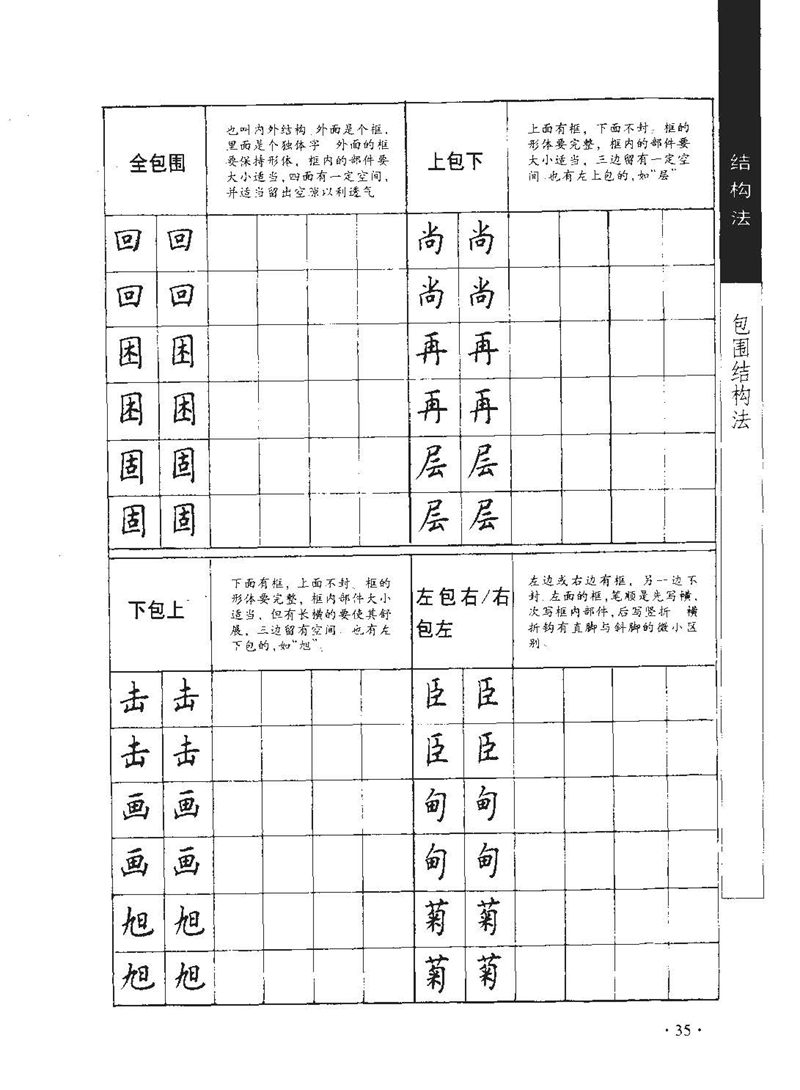 全包围
也叫内外结构.外面是个框,
里面是个独体字 外面的框
要保持形体,框内的部件要
大小适当,四面有一定空间,
并适当留出空隙以利透气
上包下
上面有框,下面不封.框的
形体要完整,框内的部件要
大小适当,三边留有一定空
间.也有左上包的,如“层”
回 回 尚 尚
回 回 尚 尚
困 困 再 再
困 困 再 再
固 固 层 层
固 固 层 层
下包上
下面有框,上面不封.框的
形体要完整,框内部件大小
适当,但有长横的要使其舒
展,三边留有空间.也有左
下包的,如“旭”.
左包右/右
包左
左边或右边有框,另一边不
封.左面的框,笔顺是先写横,
次写框内部件,后写竖折 横
折钩有直脚与斜脚的微小区
别.
击 击 臣 臣
击 击 臣 臣
画 画 甸 甸
画 画 甸 甸
旭 旭 菊 菊
旭 旭 菊 菊
结构法
包围结构法
·35·